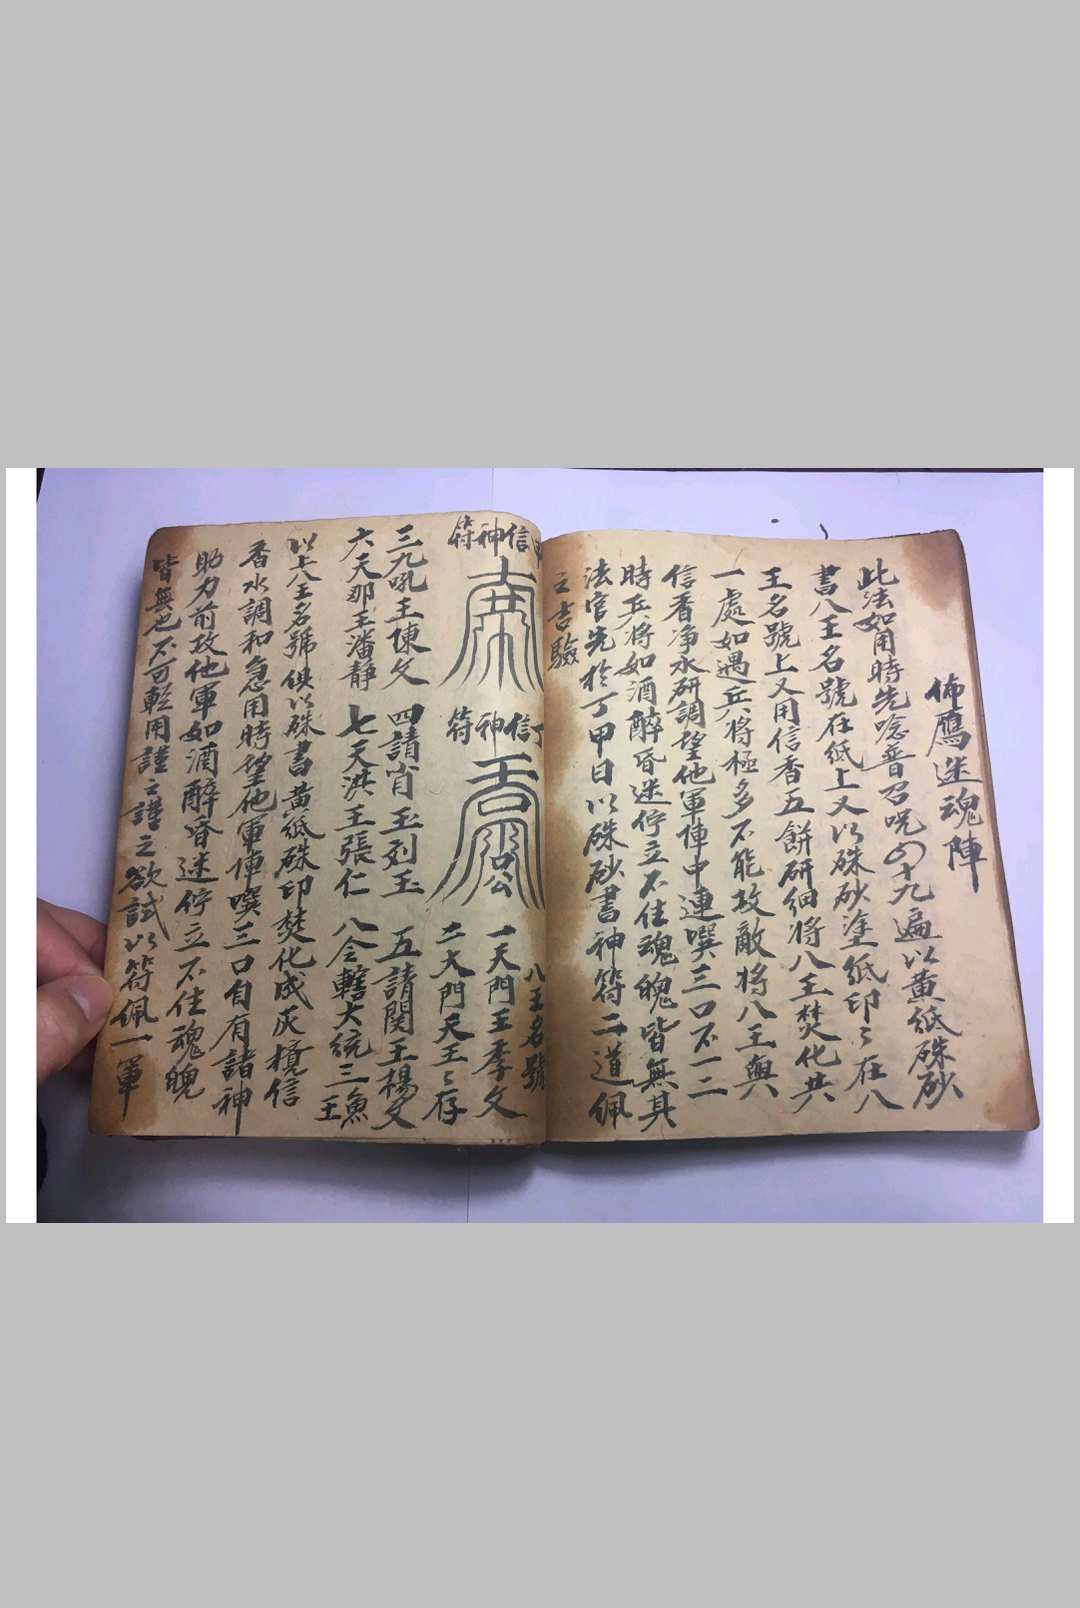 佈鷹迷魂陣
此法如用時先唸普召呪四十九遍以黃紙硃砂
書八王名號在紙上又以硃砂塗紙印〻在八
王名號上又用信香五餅研細將八王焚化共
一處如遇兵將極多不能攻敵將八王與
信香净水研調望他軍陣中連噀三口不一二
時兵將如酒醉昏迷佇立不住魂魄皆無其
法官先於丁甲日以硃砂書神符二道佩
之吉驗
甲信神符
丁信神符
八王名號
一天門王李文
二大門天王〻存
三九吼王陳文 四請肖王列玉 五請関王楊文
六天那王潘静 七天洪王張仁 八令轄大統三魚王
以上八王名號俱以硃書黃紙硃印焚化成灰攪信
香水調和急用時望他軍陣噀三口自有諸神
助力前攻他軍如酒醉昏迷佇立不住魂魄
皆無也不可輕用謹〻謹之欲試以符佩一軍